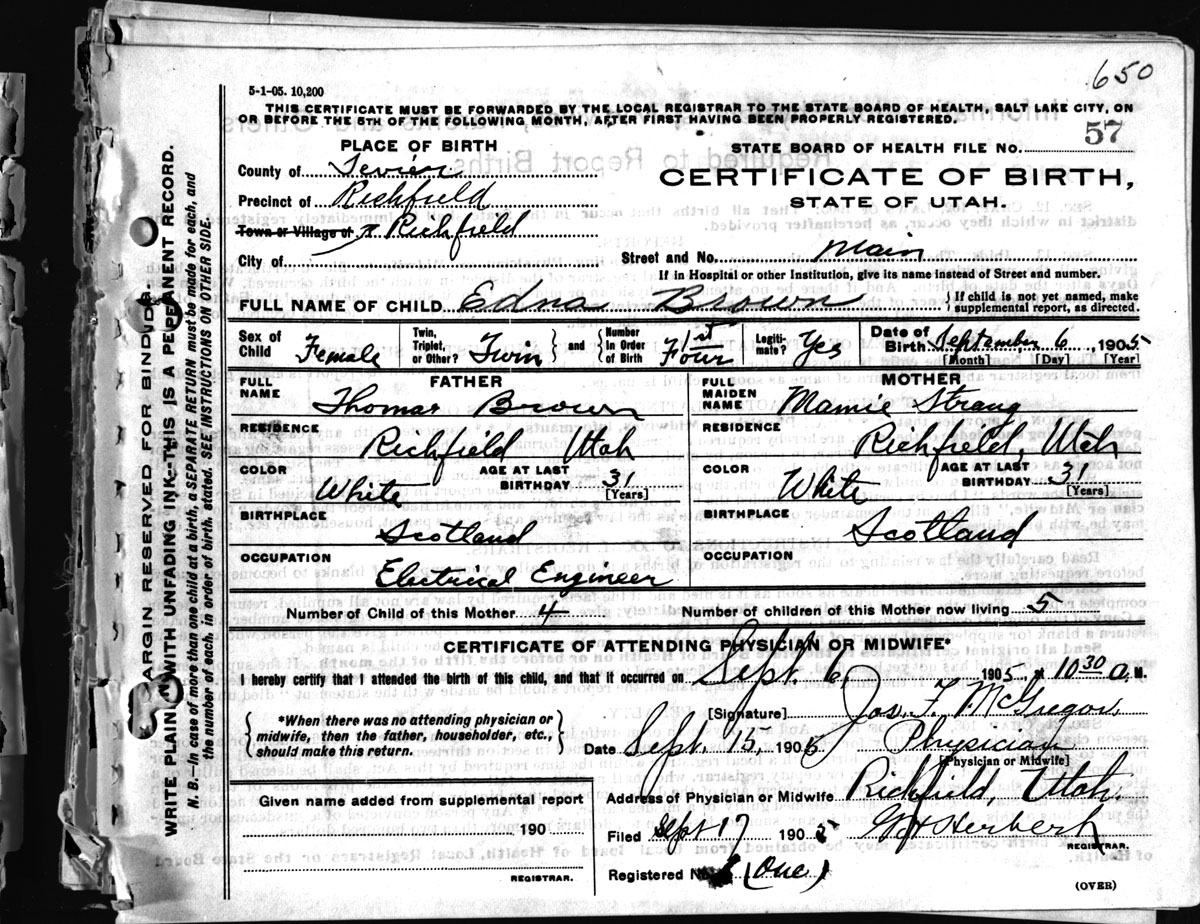 650
5-1-05. 10,200
THIS CERTIFICATE MUST BE FORWARDED BY THE LOCAL REGISTRAR TO THE STATE BOARD OF HEALTH, SALT LAKE CITY, ON
OR BEFORE THE 5TH OF THE FOLLOWING MONTH, AFTER FIRST HAVING BEEN PROPERLY REGISTERED.
PLACE OF BIRTH
County of Sevier
Precinct of Richfield
Town or Village of Richfield
City of
STATE BOARD OF HEALTH FILE NO. 57
CERTIFICATE OF BIRTH,
STATE OF UTAH.
Street and No. Main
If in Hospital or other Institution, give its name instead of Street and number.
FULL NAME OF CHILD Edna Brown } If child is not yet named, make supplemental report, as directed.
Sex of Child Female Twin, Triplet, or Other? Twin } and { Number in Order of Birth 1st Four Legiti-mate? Yes Date of Birth September 6, 1905
[Month] [Day] [Year]
FATHER
FULL NAME Thomas Brown
RESIDENCE Richfield Utah
COLOR White AGE AT LAST BIRTHDAY 31 [Years]
BIRTHPLACE Scotland
OCCUPATION Electrical Engineer
MOTHER
FULL MAIDEN NAME Mamie Strang
RESIDENCE Richfield, Utah
COLOR White AGE AT LAST BIRTHDAY 31 [Years]
BIRTHPLACE Scotland
OCCUPATION
Number of Child of this Mother 4 Number of children of this Mother now living 5
CERTIFICATE OF ATTENDING PHYSICIAN OR MIDWIFE*
I hereby certify that I attended the birth of this child, and that it occurred on Sept. 6, 1905, at 10 30 a. M.
{ *When there was no attending physician or
midwife, then the father, householder, etc.,
should make this return. }
[Signature] Jos. F. McGregor
Date Sept. 15, 1905 Physician
[Physician or Midwife]
Address of Physician or Midwife Richfield, Utah.
Given name added from supplemental report
190
REGISTRAR.
Filed Sept 17 1905 Herbert
REGISTRAR.
Registered No. (One)
(OVER)
MARGIN RESERVED FOR BINDING.
WRITE PLAINLY WITH UNFADING INK—THIS IS A PERMANENT RECORD.
N. B.—In case of more than one child at a birth, a SEPARATE RETURN must be made for each, and
the number of each, in order of birth, stated. SEE INSTRUCTIONS ON OTHER SIDE.